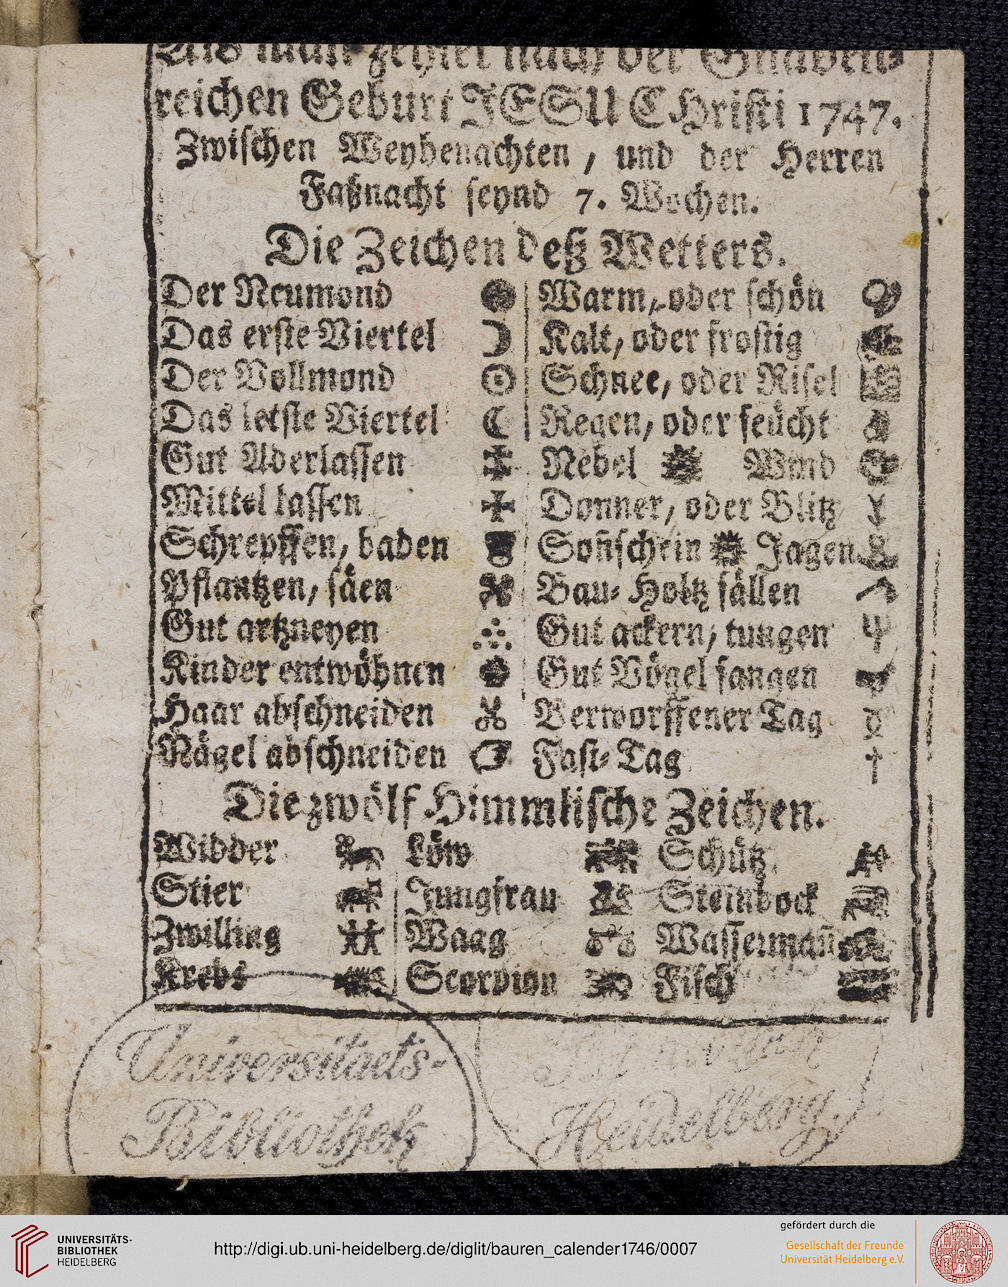 Als man zehlet nach der Gnaden-
reichen Geburt JESU CHristi 1747.
Zwischen Weyhenachten, und der Herren
Faßnacht seynd 7. Wochen.
Die Zeichen deß Wetters.
Der Neumond
Das erste Viertel
Der Vollmond
Das letste Viertel
Gut Aderlassen
Mittel lassen
Schrepffen, baden
Pflantzen, säen
Gut artzneyen
Kinder entwöhnen
Haar abschneiden
Nägel abschneiden
Warm, oder schön
Kalt, oder frostig
Schnee, oder Risel
Regen, oder feücht
Nebel Wind
Donner, oder Blitz
Soñschein Jagen
Bau-Holtz fällen
Gut ackern, tungen
Gut Vögel fangen
Verworffener Tag
Fast-Tag
Die zwölf Himmlische Zeichen.
Widder
Stier
Zwilling
Krebs
Löw
Jungfrau
Waag
Scorpion
Schütz
Steinbock
Wassermañ
Fisch
Universitaets-
Bibliothek
Heidelberg.
UNIVERSITÄTS-
BIBLIOTHEK
HEIDELBERG
http://digi.ub.uni-heidelberg.de/diglit/bauren_calender1746/0007
gefördert durch die
Gesellschaft der Freunde
Universität Heidelberg e.V.